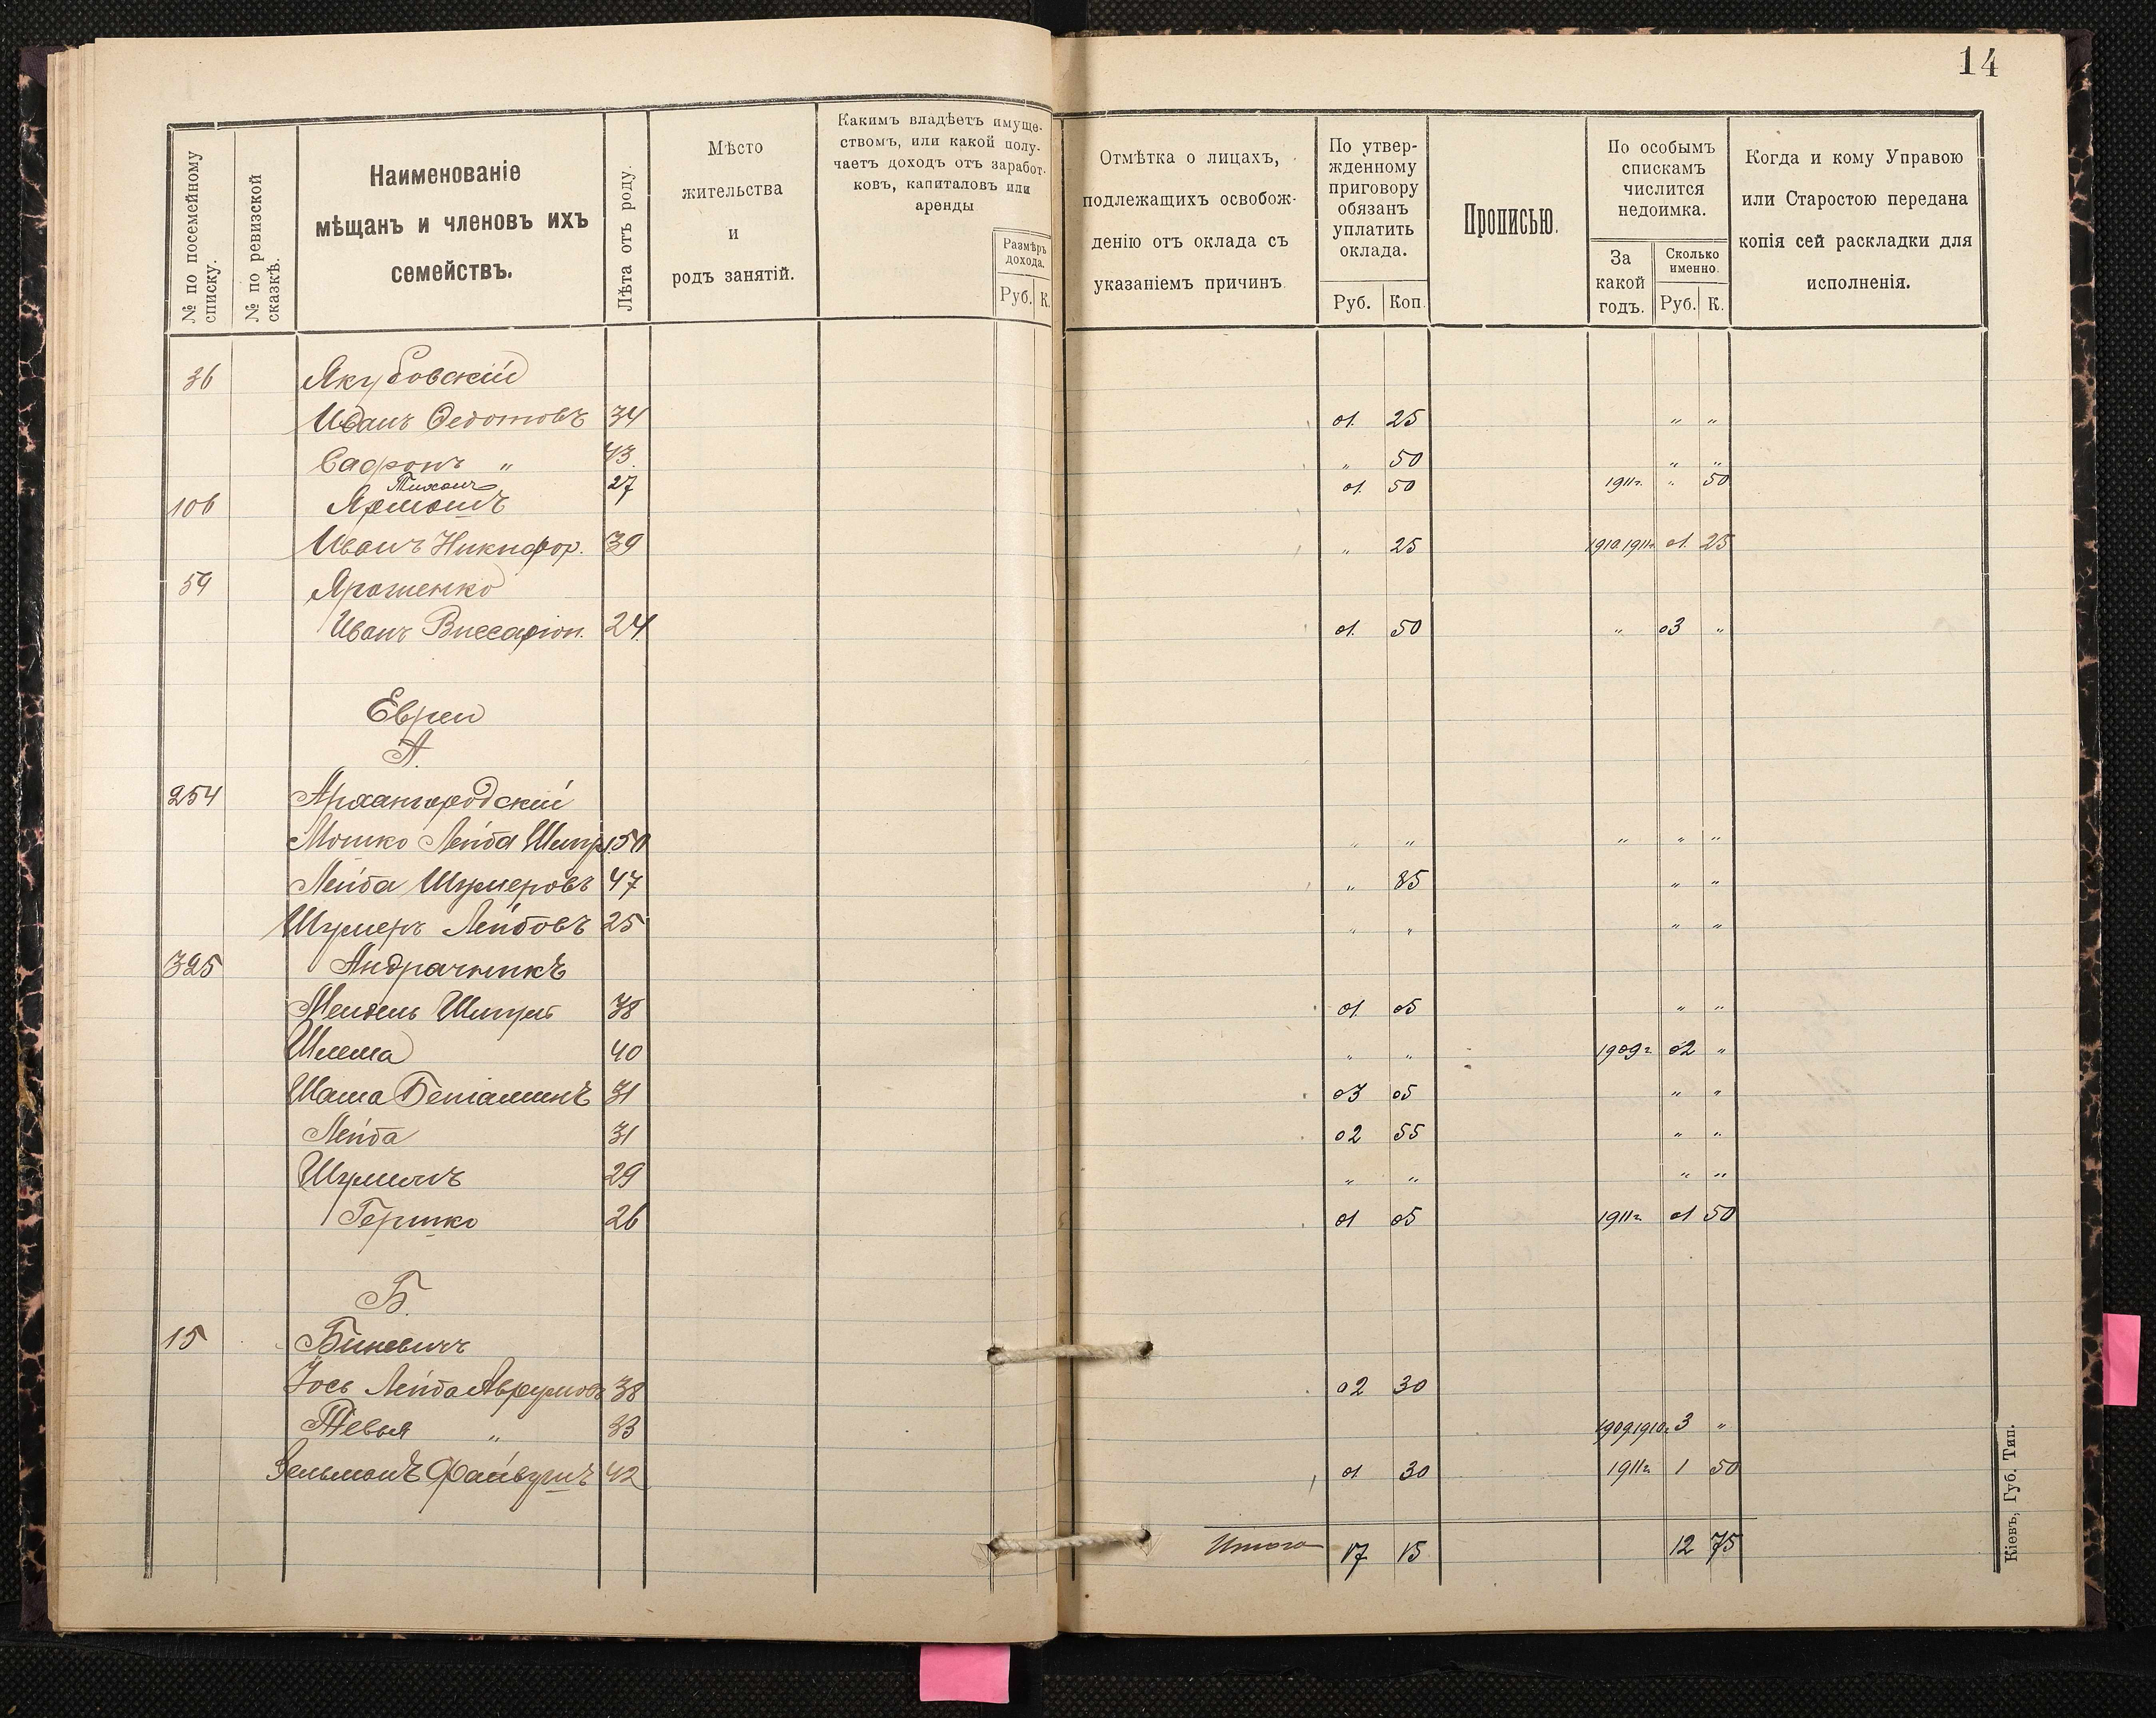 14
№ по посемейному списку.
№ по ревизской сказкѣ.
Наименованіе
мѣщанъ и членовъ ихъ
семействъ.
Лѣта отъ роду.
Мѣсто
жительства
и
родъ занятій.
Какимъ владѣетъ имуще-
ствомъ, или какой полу-
чаетъ доходъ отъ заработ-
ковъ, капиталовъ или
аренды
Размѣръ
дохода.
Руб. К.
Отмѣтка о лицахъ,
подлежащихъ освобож-
денію отъ оклада съ
указаніемъ причинъ
По утвер-
жденному
приговору
обязанъ
уплатить
оклада.
Руб. Коп.
Прописью.
По особымъ
спискамъ
числится
недоимка.
За
какой
годъ.
Сколько
именно.
Руб. К.
Когда и кому Управою
или Старостою передана
копія сей раскладки для
исполненія.
36 Якубовскій
Иванъ Федотовъ 34 01. 25 " "
Сафронъ " 43. " 50 " "
Тихонъ 27 01. 50 1911г. " 50
106
Иванъ Никифор. 39 " 25 1910 1911г. 01. 25
59 Ярошенко
Иванъ Виссаріон. 24. 01. 50 " 03 "
Евреи
А.
254 Архангородскій
Мошко Лейба 50 " " " " "
Лейба Шумеровъ 47 " 85 " "
Шумеръ Лейбовъ 25 " " " "
325 Андрачникъ
Мендель 38 01. 05 " "
Шлема 40 " " 1909г. 02 "
Беніаминъ 31 03 05 " "
Лейба 31 02 55 " "
29 " " " "
Гершко 26 01 05 1911г. 01 50
Б.
15 Биневичъ
Іось Лейба Аврумовъ 38 02 30
Тевья " 33 1909.1910г. 3 "
Зельманъ Файвушъ 42 01 30 1911г. 1 50
Итого 17 15 12 75
Кіевъ, Губ. Тип.